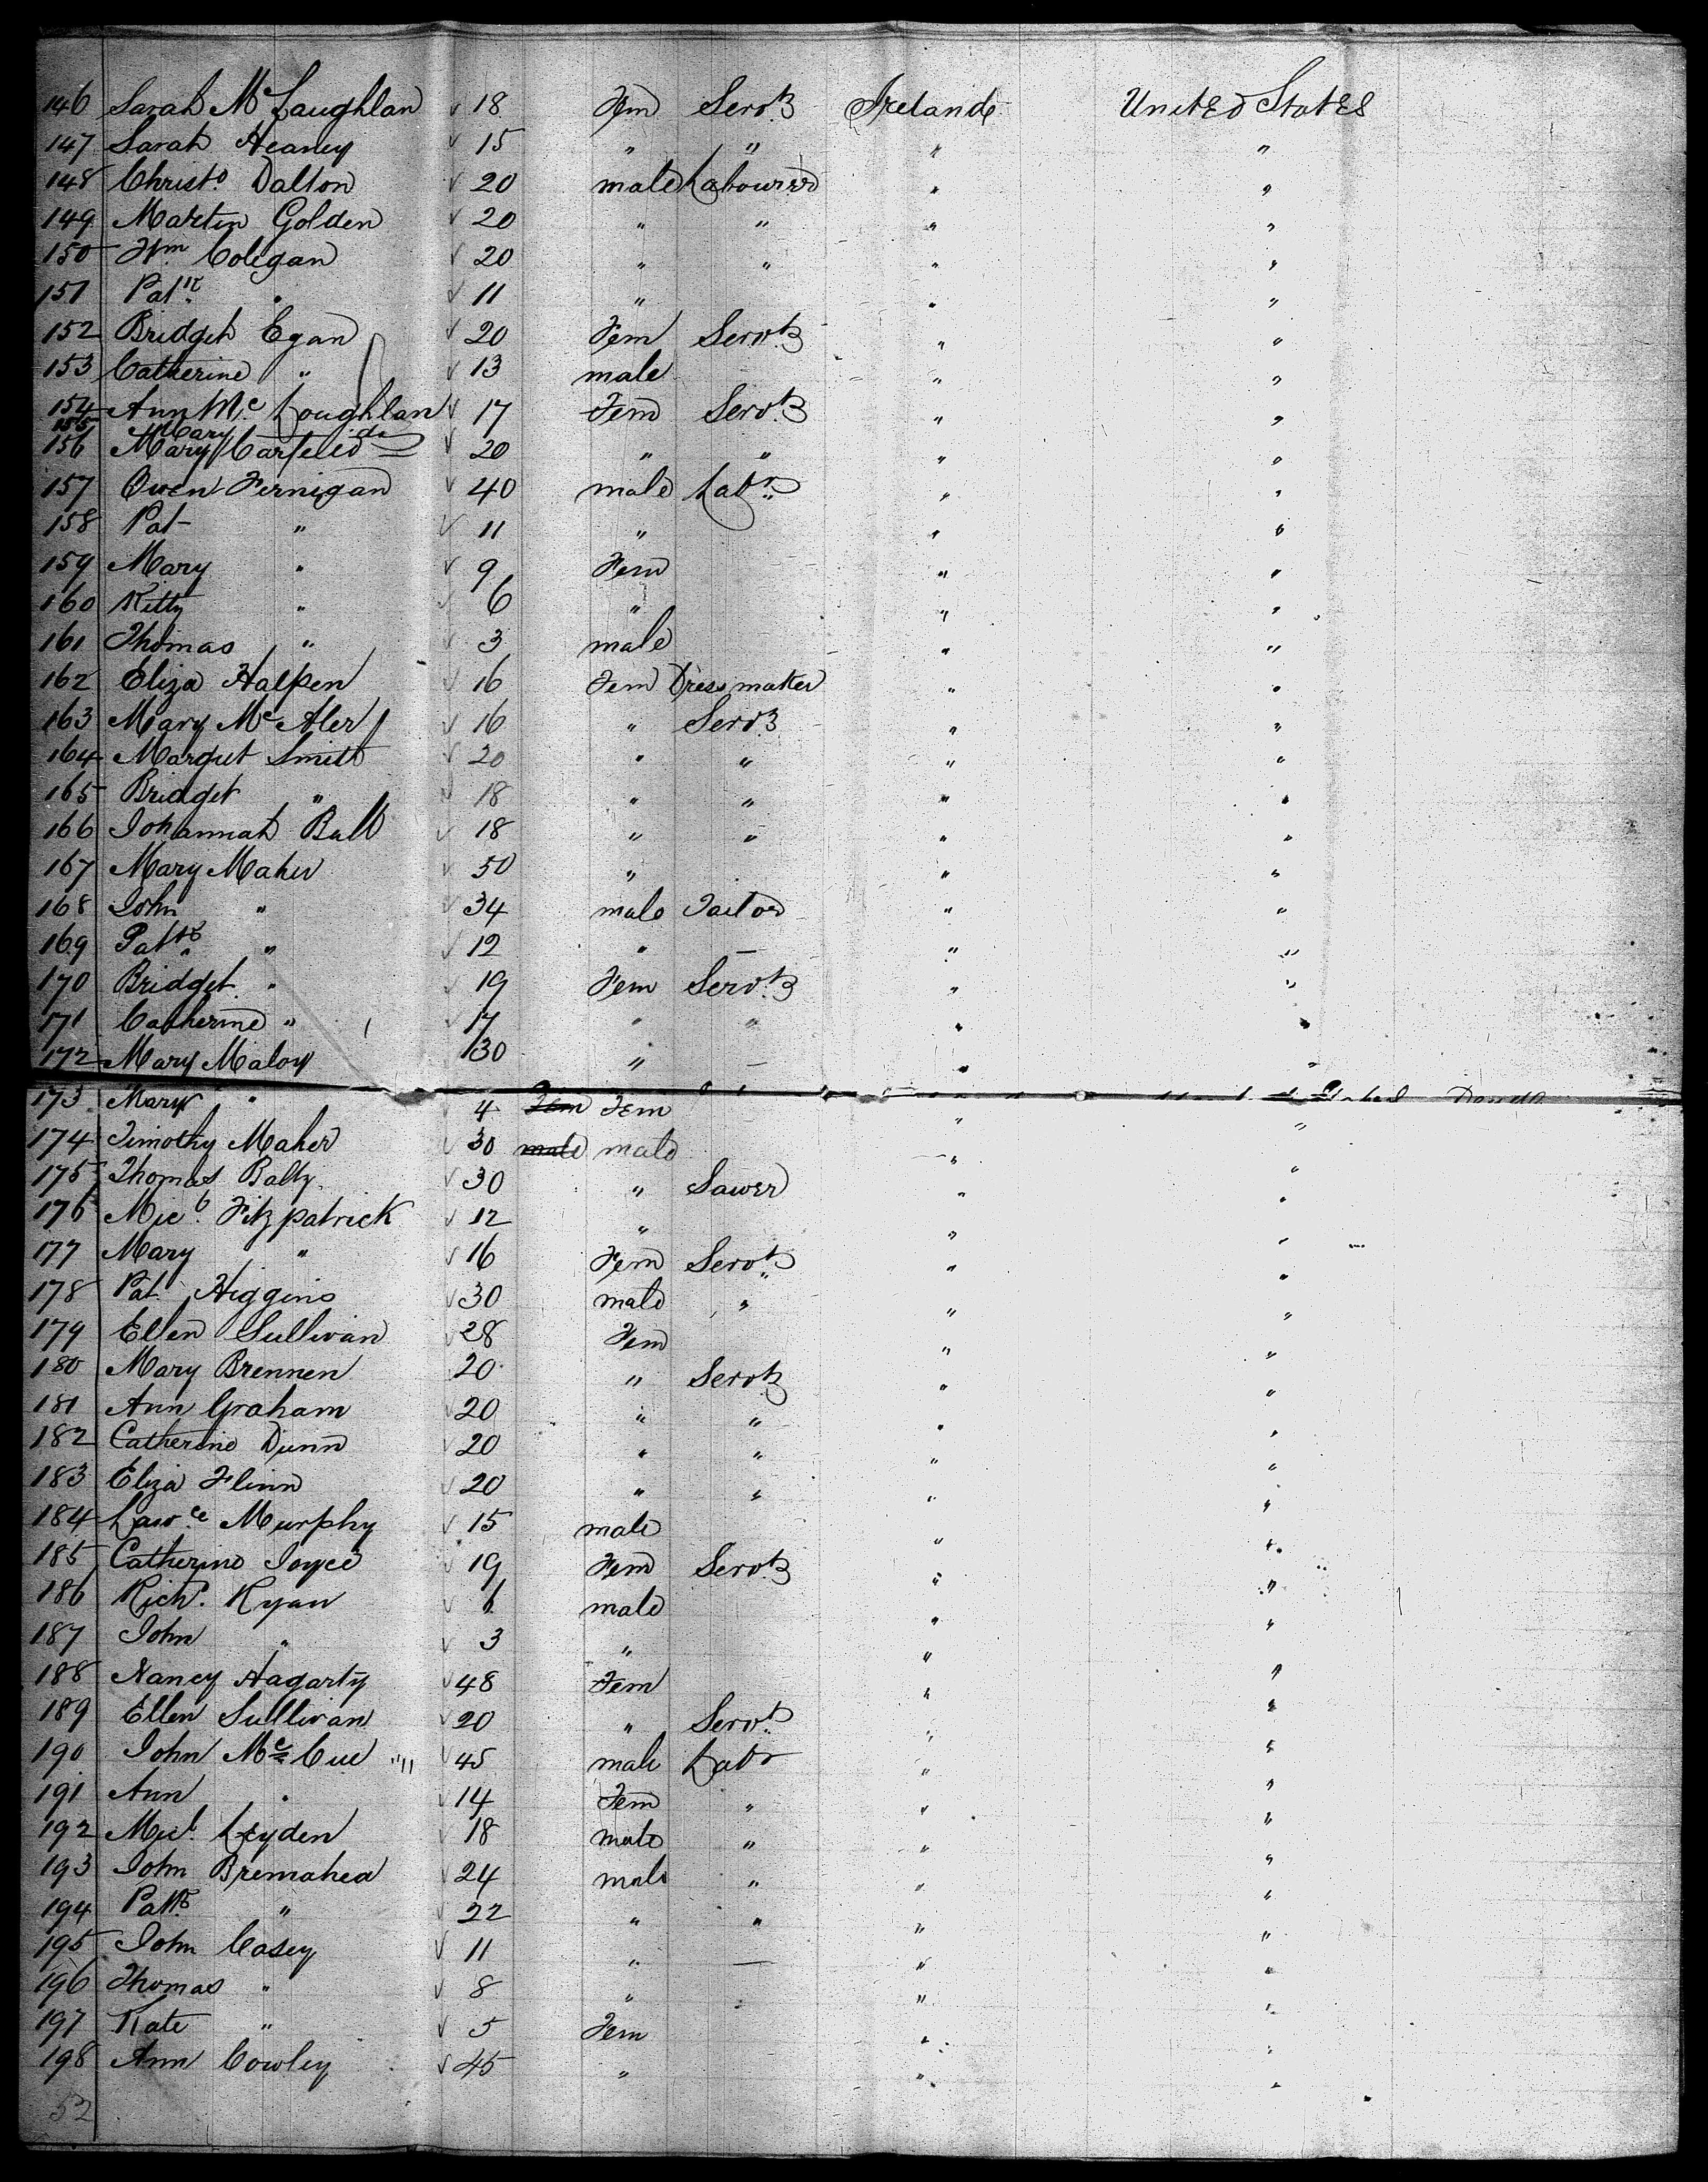 146 Sarah McLaughlan 18 Fem Servt Ireland United States
147 Sarah Heaney 15 " " " "
148 Christo Dalton 20 male Labourer " "
149 Martin Golden 20 " " " "
150 Wm Colegan 20 " " " "
151 Patk " 11 " " "
152 Bridget Egan 20 Fem Servt " "
153 Catherine " 13 male " "
154 Ann Mc Loughlan 17 Fem Servt " "
155 Mary do
156 Mary 20 " " " "
157 Owen Fernigan 40 male Labr " "
158 Pat " 11 " " "
159 Mary " 9 Fem " "
160 Kitty " 6 " " "
161 Thomas " 3 male " "
162 Eliza Halpen 16 Fem Dress maker " "
163 Mary McAler 16 " Servt " "
164 Margret Smith 20 " " " "
165 Bridget " 18 " " " "
166 Johannah Ball 18 " " " "
167 Mary Maher 50 " " "
168 John " 34 male Tailor " "
169 Patk " 12 " — " "
170 Bridget " 19 Fem Servt " "
171 Catherine " 17 " " " "
172 Mary Maloy 30 " — " "
173 Mary " 4 Fem Fem " "
174 Timothy Maher 30 male male " "
175 Thomas Balty 30 " Sawer " "
176 Micl Fitzpatrick 12 " " "
177 Mary " 16 Fem Servt " "
178 Pat Higgins 30 male " " "
179 Ellen Sullivan 28 Fem " "
180 Mary Brennen 20 " Servt " "
181 Ann Graham 20 " " " "
182 Catherine Dunn 20 " " " "
183 Eliza Flinn 20 " " " "
184 Lawce Murphy 15 male " "
185 Catherine Joyce 19 Fem Servt " "
186 Richd Ryan male " "
187 John " 3 " " "
188 Nancy Hagarty 48 Fem " "
189 Ellen Sullivan 20 " Servt " "
190 John McCue 45 male Labr " "
191 Ann " 14 Fem " " "
192 Micl Leyden 18 male " " "
193 John Bremahea 24 male " " "
194 Patk " 22 " " " "
195 John Casey 11 " — " "
196 Thomas " 8 " " "
197 Kate " 5 Fem " "
198 Ann Cowley 45 " " "
52